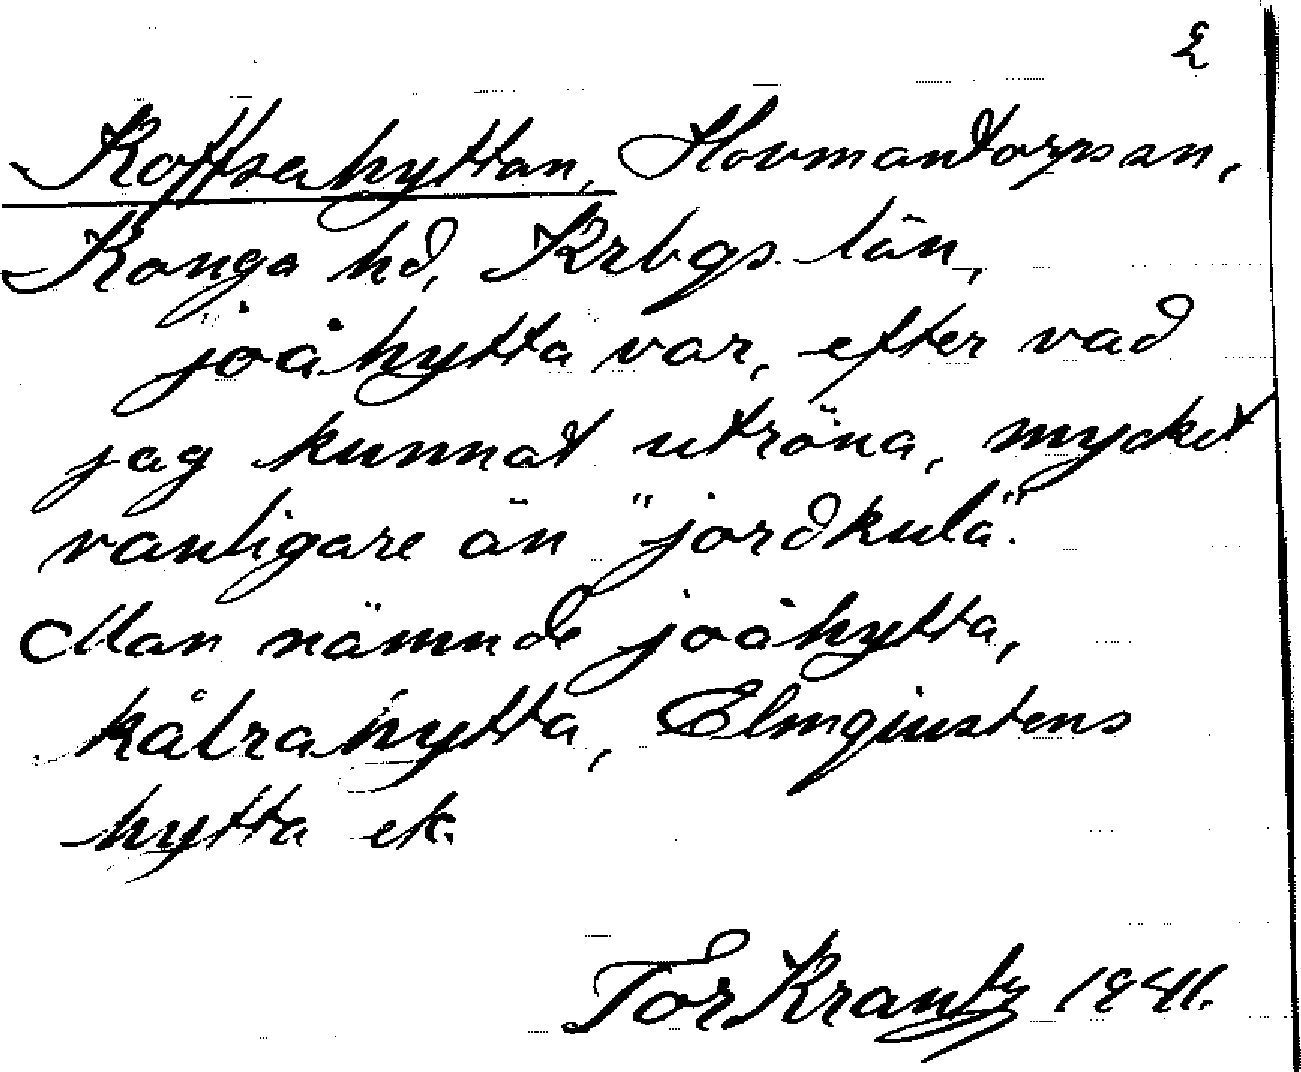 2
Koffsahyttan, Hovmantorps sn,
Konga hd, Krbgs. län,
joåhytta var, efter vad
jag kunnat utröna, mycket
vanligare än "jordkula".
Man nämnde joåhytta,
kåtrahytta, Elmqvistens
hytta etc.
Tor Krantz 1941.